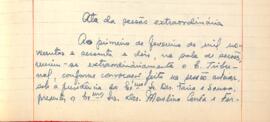 Ata da sessão extraordinária
Ao primeiro de fevereiro de mil no-
vecentos e sessenta e dois, na sala de sessões,
reuniu-se extraordinariamente o E. Tribu-
nal, conforme convocação feita na sessão anterior,
sob a presidência do Exmo Sr. Des. Faria e Sousa,
presentes os Exmos Srs. Des. Marcelino